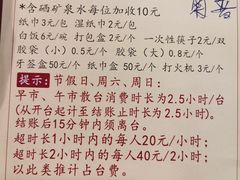 *含硒矿泉水每位加收10元
纸巾3元/包 湿纸巾2元/包
白饭6元/碗 打包盒2元/个 一次性筷子2元/双
胶袋(小)0.5元/个 胶袋(大)0.8元/个
牙签盒50元/个 纸巾盒50元/个 打火机3元/个
提示:节假日、周六、周日:
早市、午市散台消费时长为2.5小时/台
(从开台起计至结账止时长为2.5小时)。
结账后15分钟内须离台。
超时长1小时内的每人20元/小时;
超时长2小时内的每人40元/2小时;
以此类推计占台费。